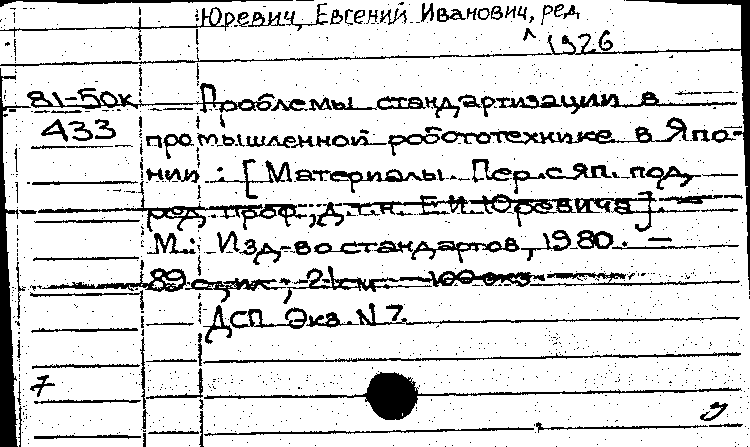 Юревич, Евгений Иванович, ред.
1926
81-50к
433
Проблемы стандартизации в
промышленной робототехнике в Япо-
нии : [Материалы. Пер. с яп. под
ред. проф., д.т.н. Е.И. Юревича]. —
М.: Изд-во стандартов, 1980. —
89 с., ил ; 21 см. — 100 экз.
ДСП Экз. N 7.
7